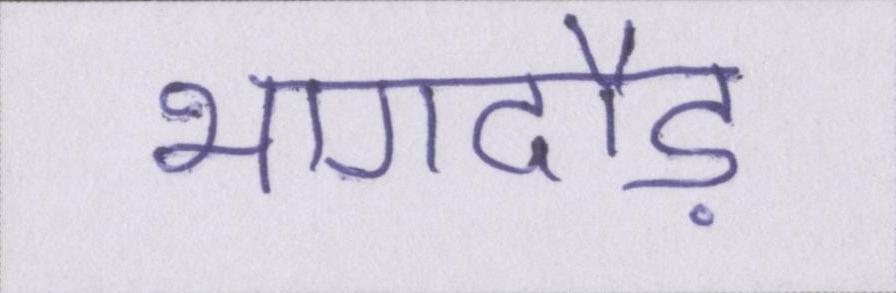 भागदौड़